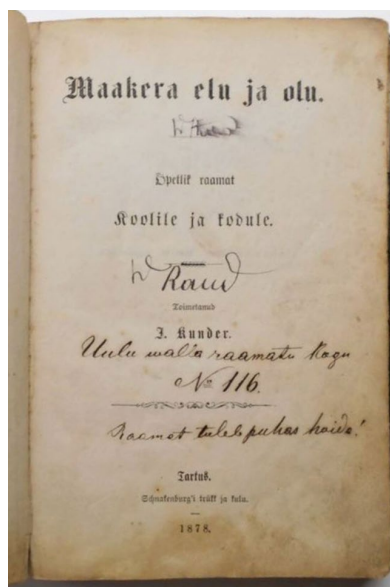 Maakera elu ja olu.
Õpetlik raamat
Koolile ja kodule.
W Raud
Toimetanud
J. Kunder.
Uulu walla raamatu kogu
№ 116.
Raamat tuleb puhas hoida!
Tartus.
Schnakenburg'i trükk ja kulu.
1878.